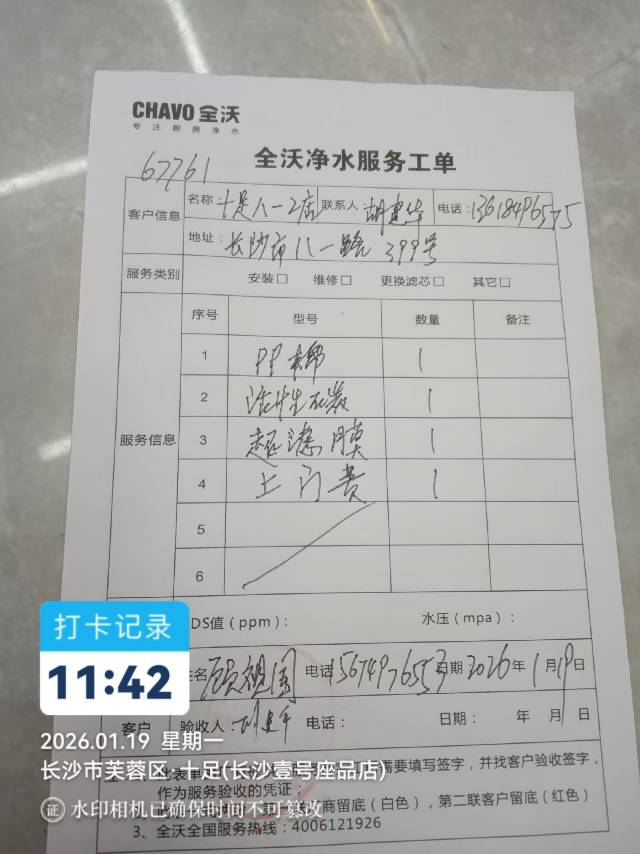 CHAVO 全沃
专注厨房净水
67761
全沃净水服务工单
客户信息 名称 十足八一2店 联系人 胡建华 电话：13618496575
地址：长沙市八一路 399号
服务类别 安装□ 维修□ 更换滤芯□ 其它□
服务信息 序号 型号 数量 备注
1 PP棉 1
2 活性炭 1
3 超滤膜 1
4 上门费 1
5
6
DS值（ppm）： 水压（mpa）：
姓名 顾祖国 电话 15674976553 日期 2026年1月19日
客户 验收人： 电话： 日期： 年 月 日
打卡记录
11:42
2026.01.19 星期一
长沙市芙蓉区·十足(长沙壹号座品店)
水印相机已确保时间不可篡改
此表单 需要填写签字，并找客户验收签字，
作为服务验收的凭证；
商留底（白色），第二联客户留底（红色）
3、全沃全国服务热线：4006121926